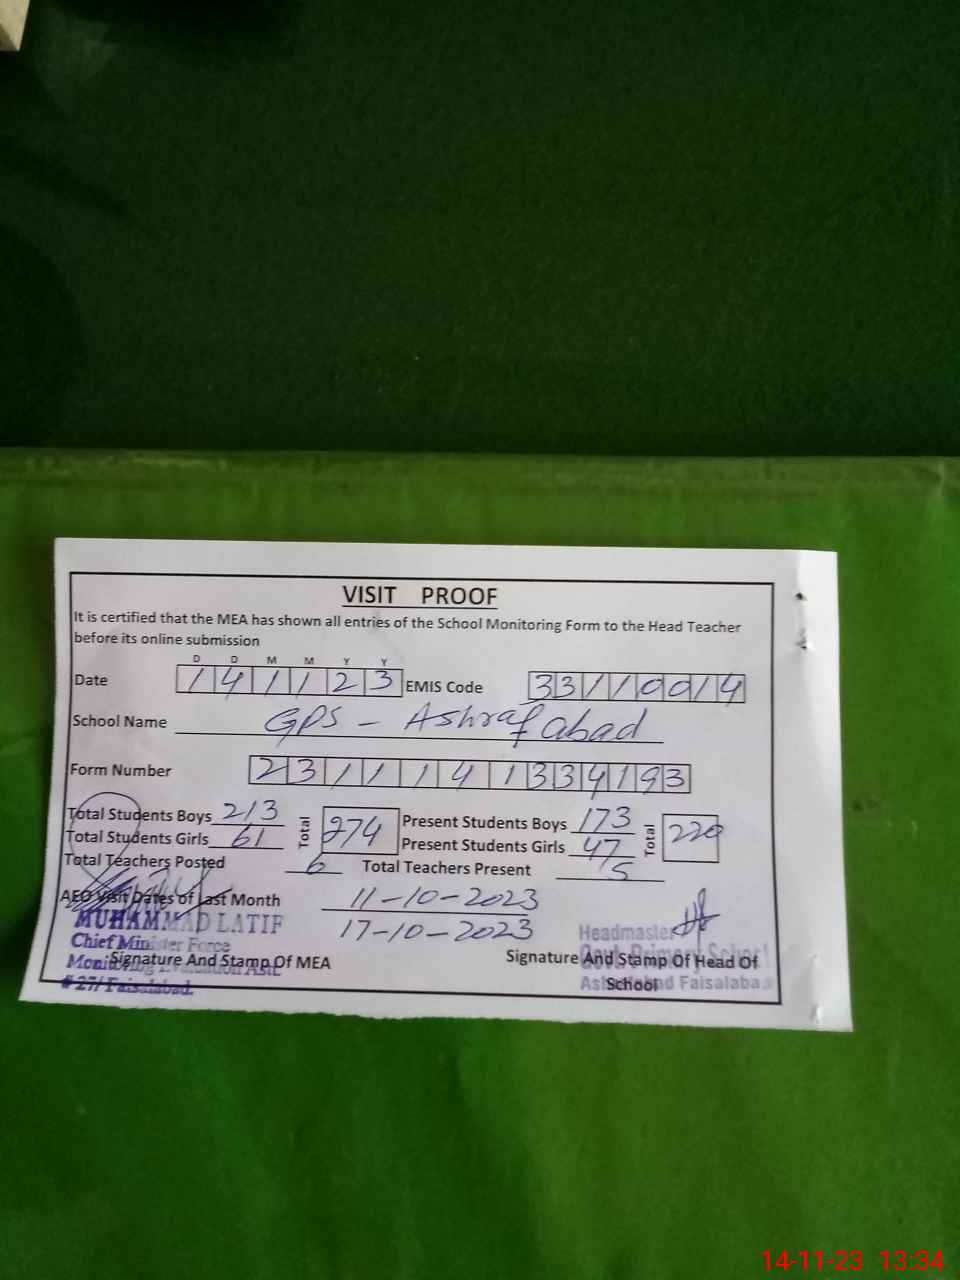 VISIT PROOF
It is certified that the MEA has shown all entries of the School Monitoring Form to the Head Teacher
before its online submission
D D M M Y Y
Date 141123 EMIS Code 33110014
School Name GPS - Ashrafabad
Form Number 2311141334193
Total Students Boys 213 Total 274 Present Students Boys 173 Total 220
Total Students Girls 61 Present Students Girls 47
Total Teachers Posted 6 Total Teachers Present 5
AEO Visit Dates of Last Month 11-10-2023
17-10-2023
MUHAMMAD LATIF
Chief Minister Force
Monitoring Evaluation Astt
# 27/ Faisalabad.
Signature And Stamp Of MEA
Headmaster
Govt. Primary School
Faisalaba
Signature And Stamp Of Head Of
School
14-11-23 13:34